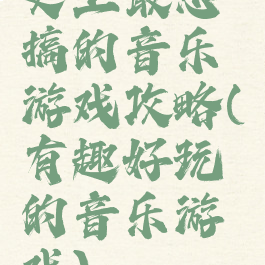 史上最恶
搞的音乐
游戏攻略(
有趣好玩
的音乐游
戏)